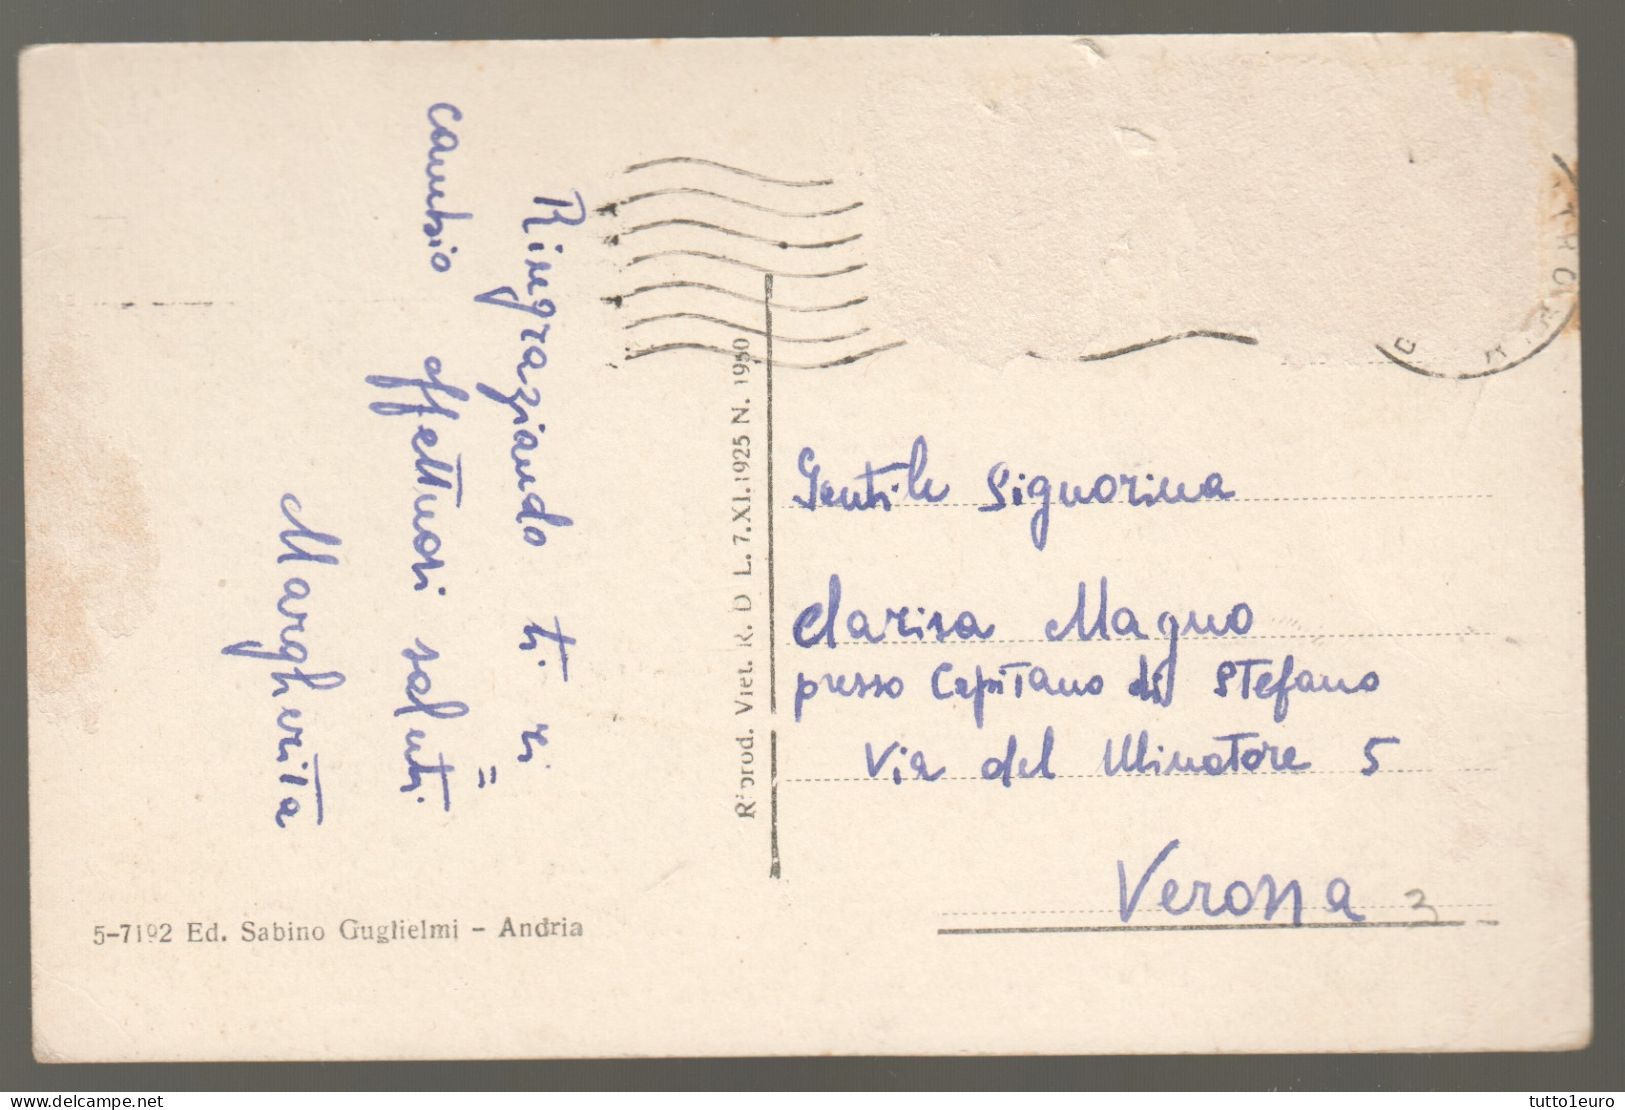 Ringraziando ti ri=
cambio affettuosi saluti.
Margherita
5-7192 Ed. Sabino Guglielmi - Andria
Riprod. Viet. R. D L. 7.XI.1925 N. 1950
Gentile Signorina
Clarisa Magno
presso Capitano di Stefano
Via del Minatore 5
Verona
3
tutto1euro